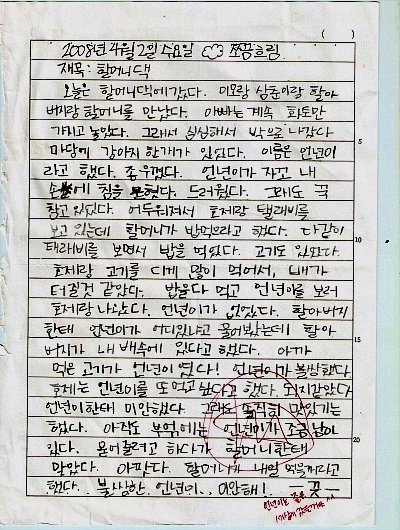 2008년 4월 2일 수요일 쪼끔흐림
제목: 할머니댁
오늘은 할머니댁에 갔다. 이모랑 삼춘이랑 할아
버지랑 할머니를 만났다. 아빠는 계속 화토만
가지고 놀았다. 그래서 심심해서 밖으로 나갔다
마당에 강아지 한개가 있었다. 이름은 언년이
라고 했다. 조우껐다. 언년이가 자꼬 내
손에 침을 뭍혔다. 드러웠다. 그래도 꾹
참고 있었다. 어두워져서 호제랑 탤래비를
보고 있는데 할머니가 밥먹으라고 했다. 다같이
태래비를 보면서 밥을 먹었다. 고기도 있었다.
호제랑 고기를 디게 많이 먹어서, 배가
터질것 같았다. 밥을 다 먹고 언년이를 보러
호제랑 나갔다. 언년이가 없었다. 할아버지
한태 언년이가 어디있냐고 물어봤는데 할아
버지가 내 배속에 있다고 했다. 아까
먹은 고기가 언년이 였다! 언년이가 불쌍했다
호제는 언년이를 또 먹고 싶다고 했다. 돼지같았다
언년이한태 미안했다 그래도 솔직히 맛있기는
했다. 아직도 부엌에는 언년이가 조금 남어
있다. 몰어걸려고 하다가 할머니한태
맞았다. 아팠다. 할머니가 내일 먹을꺼라고
했다.. 불상한 언년이.. 미안해! - 끗 -
언년이는 좋은
5
10
15
20